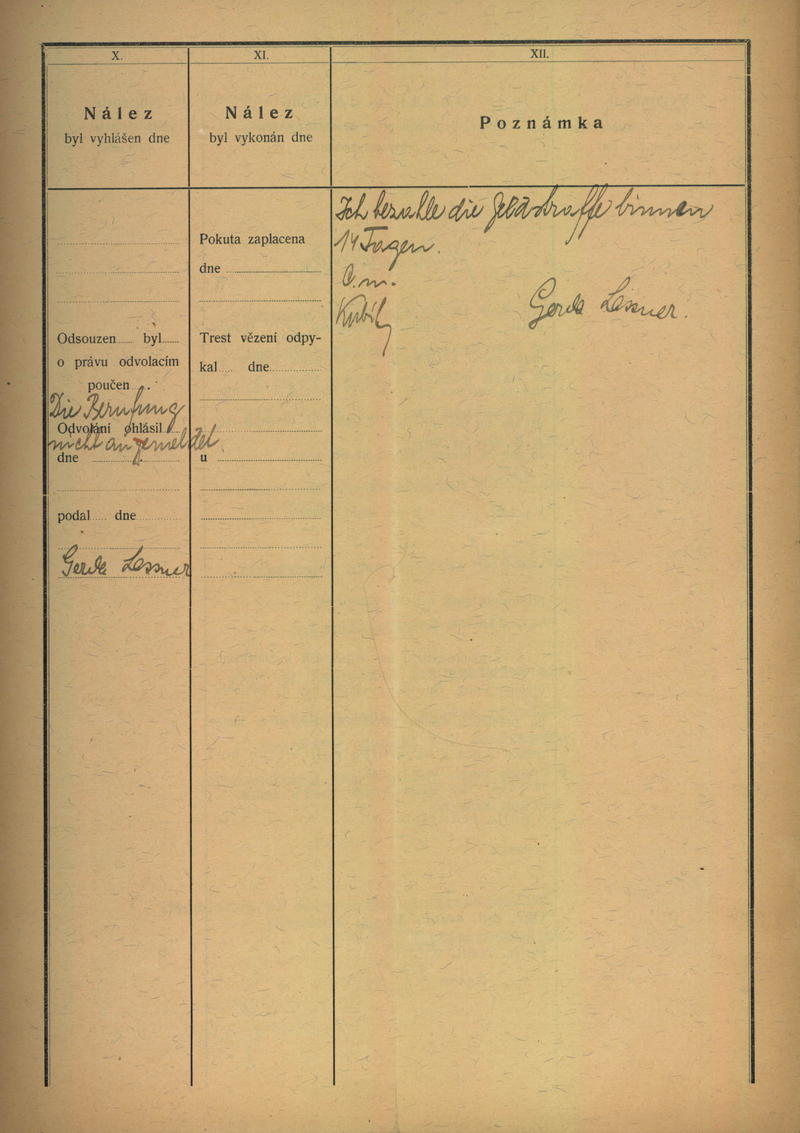 X.
Nález
byl vyhlášen dne
Odsouzen...... byl......
o právu odvolacím
poučen
Die Berufung
Odvolání ohlásil
nicht angemeldet.
dne
podal..... dne
Gerda Lessner
XI.
Nález
byl vykonán dne
Pokuta zaplacena
dne
Trest vězení odpy-
kal..... dne
u
XII.
Poznámka
Ich bezahle die Geldstraffe binnen
14 Tagen.
Gerda Lessner.